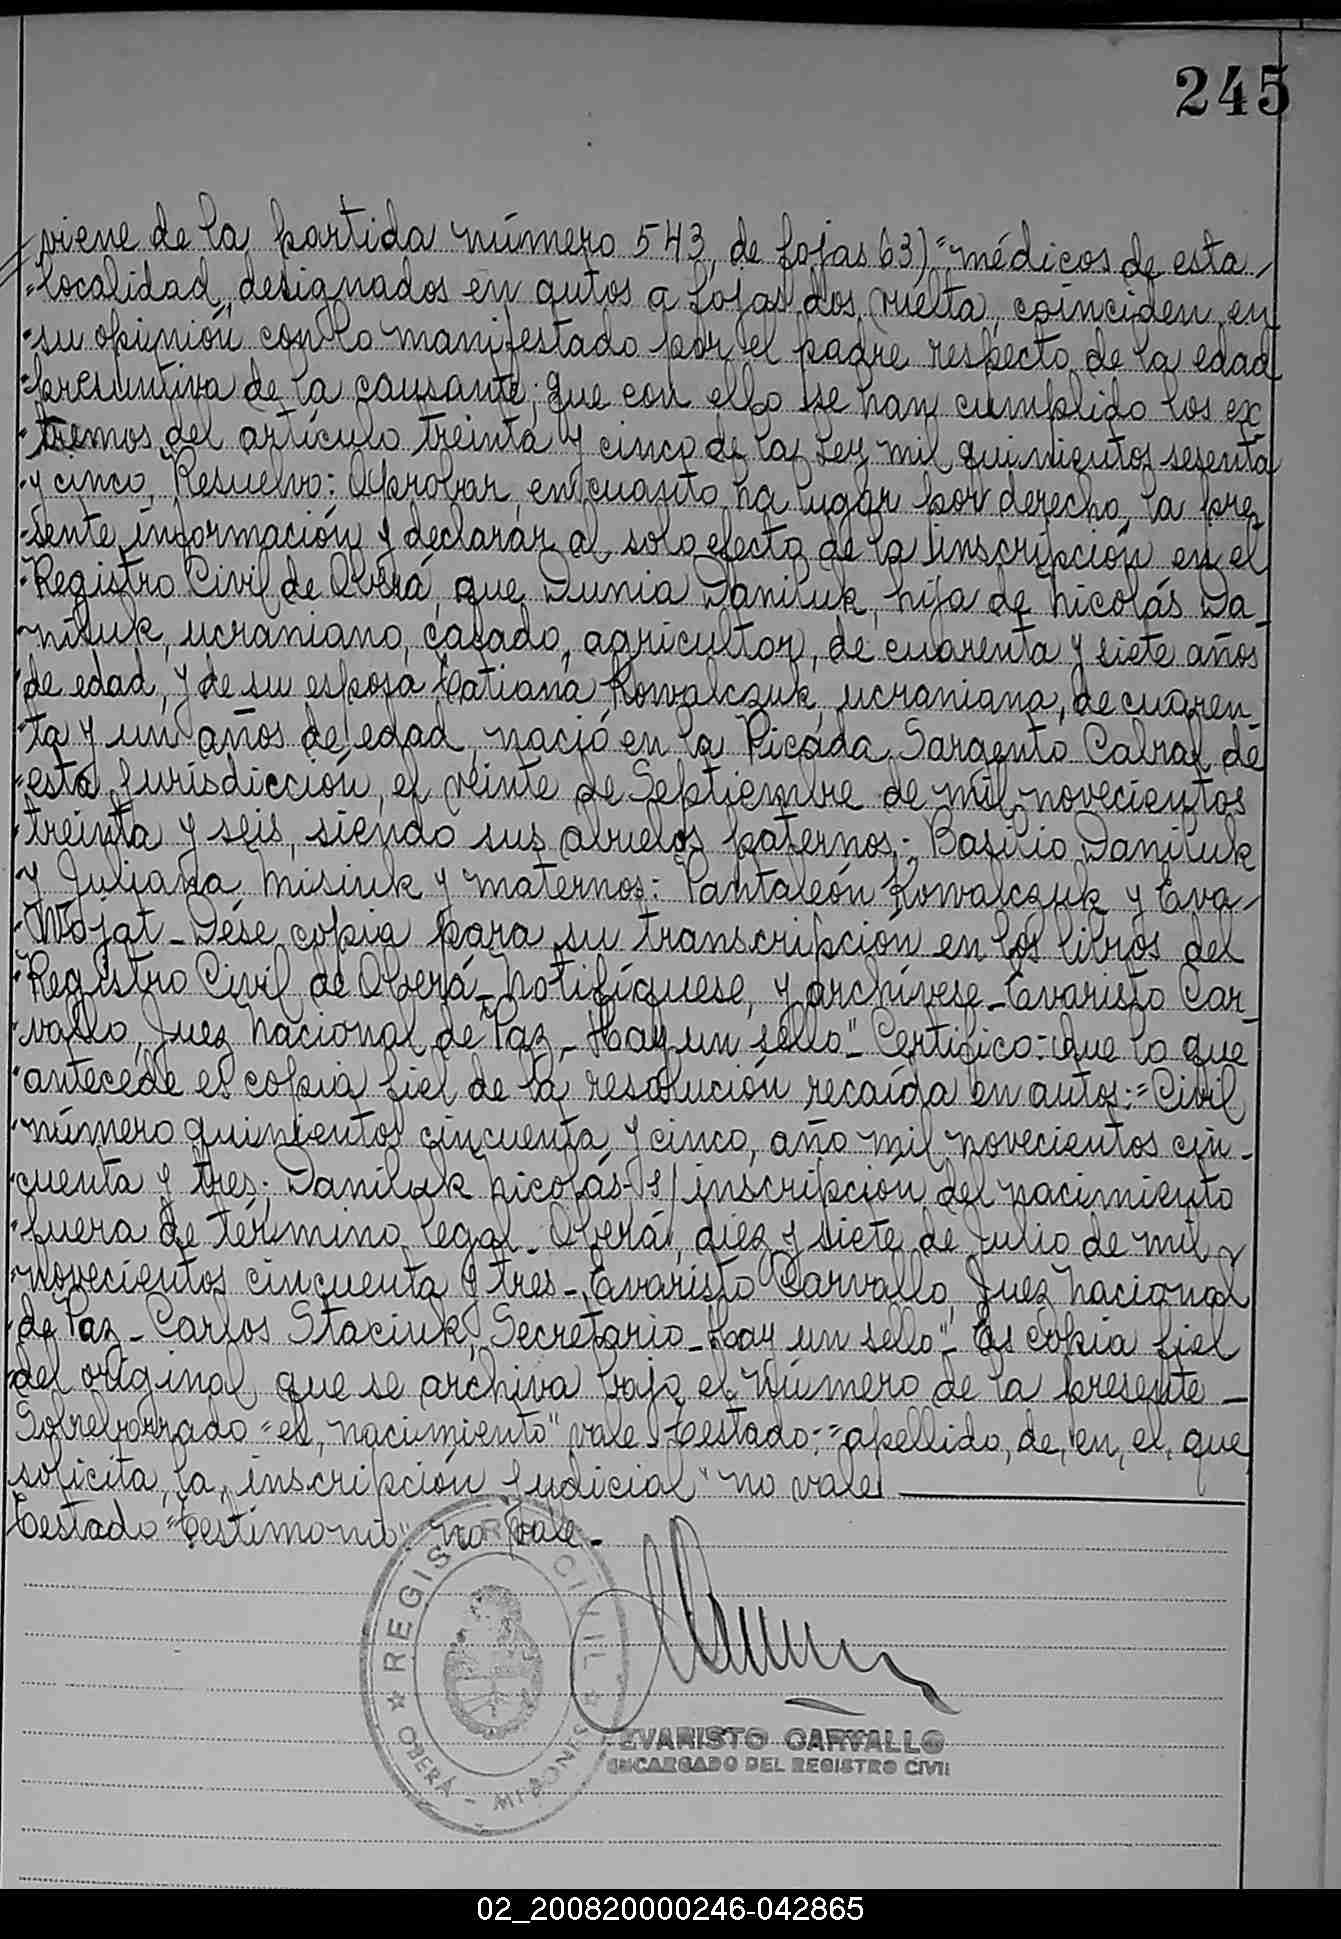 245
viene de la partida número 543, de fojas 63) "médicos de esta
"localidad, designados en autos a fojas dos vuelta, coinciden en
"su opinión con lo manifestado por el padre respecto de la edad
"presuntiva de la causante; que con ello se han cumplido los ex
"tremos del artículo treinta y cinco de la Ley mil quinientos sesenta
"y cinco, Resuelvo: Aprobar en cuanto ha lugar por derecho, la pre
"sente información y declarar al solo efecto de la inscripción en el
"Registro Civil de Oberá, que Dunia Daniluk, hija de Nicolás Da-
"niluk, ucraniano, casado, agricultor, de cuarenta y siete años
"de edad, y de su esposa Tatiana Kowalczuk, ucraniana, de cuaren-
"ta y un años de edad, nació en la Picada Sargento Cabral de
"esta Jurisdicción, el veinte de Septiembre de mil novecientos
"treinta y seis, siendo sus abuelos paternos:- Basilio Daniluk
"y Juliana Misiuk y maternos: Pantaleón Kowalczuk y Eva
"Wojat - Dése copia para su transcripción en los libros del
"Registro Civil de Oberá - Notifíquese, y archívese - Evaristo Car-
"vallo, Juez Nacional de Paz - Hay un sello" - Certifico: que lo que
"antecede es copia fiel de la resolución recaída en autos:= Civil
"número quinientos cincuenta y cinco, año mil novecientos cin-
"cuenta y tres; Daniluk Nicolás - s/ inscripción del nacimiento
"fuera de término legal - Oberá, diez y siete de Julio de mil
"novecientos cincuenta y tres - Evaristo Carvallo, Juez Nacional
"de Paz - Carlos Staciuk, Secretario - Hay un sello" - Es copia fiel
del original, que se archiva bajo el Número de la presente -
Sobreborrado = es, nacimiento" vale - Testado: = apellido, de, en, el, que
solicita, la, inscripción Judicial" no vale
Testado "Testimoni" no vale -
REGISTRO CIVIL
OBERÁ - MISIONES
EVARISTO CARVALLO
ENCARGADO DEL REGISTRO CIVIL
02_200820000246-042865